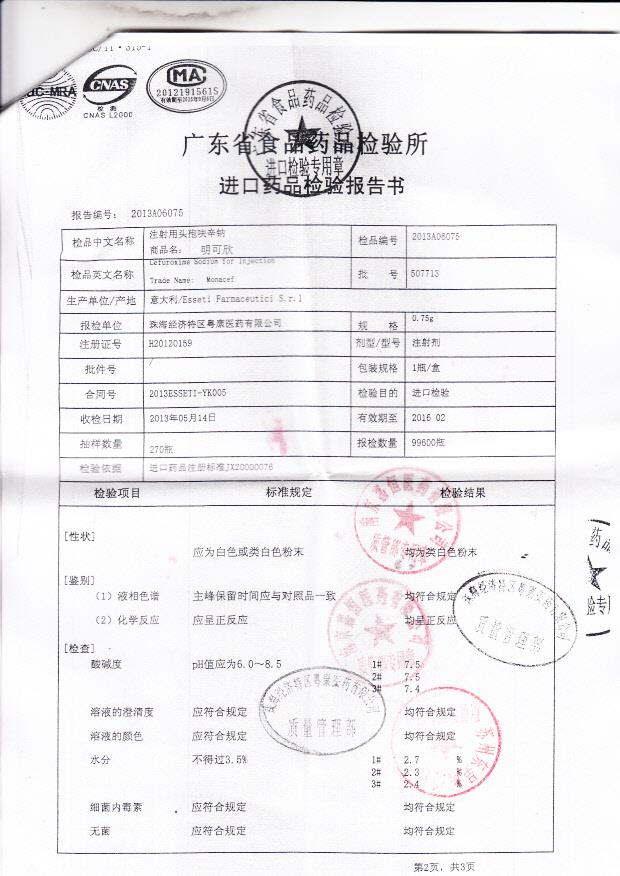 ILAC-MRA
CNAS
检 测
CNAS L2000
MA
2012191561S
广东省食品药品检验所
进口检验专用章
广东省食品药品检验所
进口药品检验报告书
报告编号： 2013A06075
检品中文名称 注射用头孢呋辛钠 商品名： 明可欣 检品编号 2013A06075
检品英文名称 Cefuroxime Sodium for Injection Trade Name: Monacef 批 号 507713
生产单位/产地 意大利/Esseti Farmaceutici S.r.l
报检单位 珠海经济特区粤康医药有限公司 规 格 0.75g
注册证号 H20120159 剂型/型号 注射剂
批件号 / 包装规格 1瓶/盒
合同号 2013ESSETI-YK005 检验目的 进口检验
收检日期 2013年05月14日 有效期至 2016 02
抽样数量 270瓶 报检数量 99600瓶
检验依据 进口药品注册标准JX20000076
检验项目 标准规定 检验结果
[性状]
应为白色或类白色粉末 均为类白色粉末
[鉴别]
（1）液相色谱 主峰保留时间应与对照品一致 均符合规定
（2）化学反应 应呈正反应 均呈正反应
[检查]
酸碱度 pH值应为6.0～8.5 1# 7.5
2# 7.5
3# 7.4
溶液的澄清度 应符合规定 均符合规定
溶液的颜色 应符合规定 均符合规定
水分 不得过3.5% 1# 2.7 %
2# 2.3 %
3# 2.4 %
细菌内毒素 应符合规定 均符合规定
无菌 应符合规定 均符合规定
珠海经济特区粤康医药有限公司
质量管理部
珠海经济特区粤康医药有限公司
质量管理部
第2页，共3页